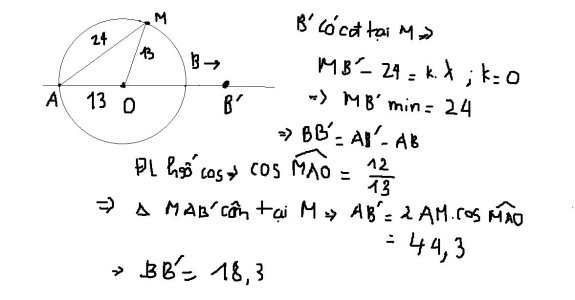 M
24
13
B→
A
13
O
B'
B' có cđ tại M ⇒
MB' - 24 = k.λ ; k=0
⇒ MB' min = 24
⇒ BB' = AB' - AB
ĐL hsố cos ⇒ cos MAO = 12/13
⇒ Δ MAB' cân tại M ⇒ AB' = 2 AM.cos MAO
= 44,3
⇒ BB' = 18,3